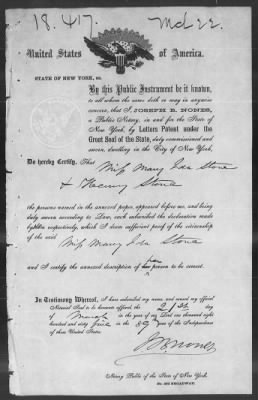 18.417. Mch 22.
United States of America.
STATE OF NEW YORK, ss.
By this Public Instrument be it known,
to all whom the same doth or may in anywise
concern, that I, JOSEPH B. NONES,
a Public Notary, in and for the State of
New York, by Letters Patent under the
Great Seal of the State, duly commissioned and
sworn, dwelling in the City of New York,
Do hereby Certify, That Miss Mary Ida Stone
& Henry Stone
the persons named in the annexed paper, appeared before me, and being
duly sworn according to Law, each subscribed the declaration made
by them respectively, which I deem sufficient proof of the citizenship
of the said
Miss Mary Ida Stone
and I certify the annexed description of her person to be correct.
In Testimony Whereof, I have subscribed my name and caused my official
Notarial Seal to be hereunto affixed, the 21st day
of March in the year of our Lord one thousand eight
hundred and sixty five in the 89 Year of the Independence
of these United States.
J B Nones
Notary Public of the State of New York.
BROADWAY.